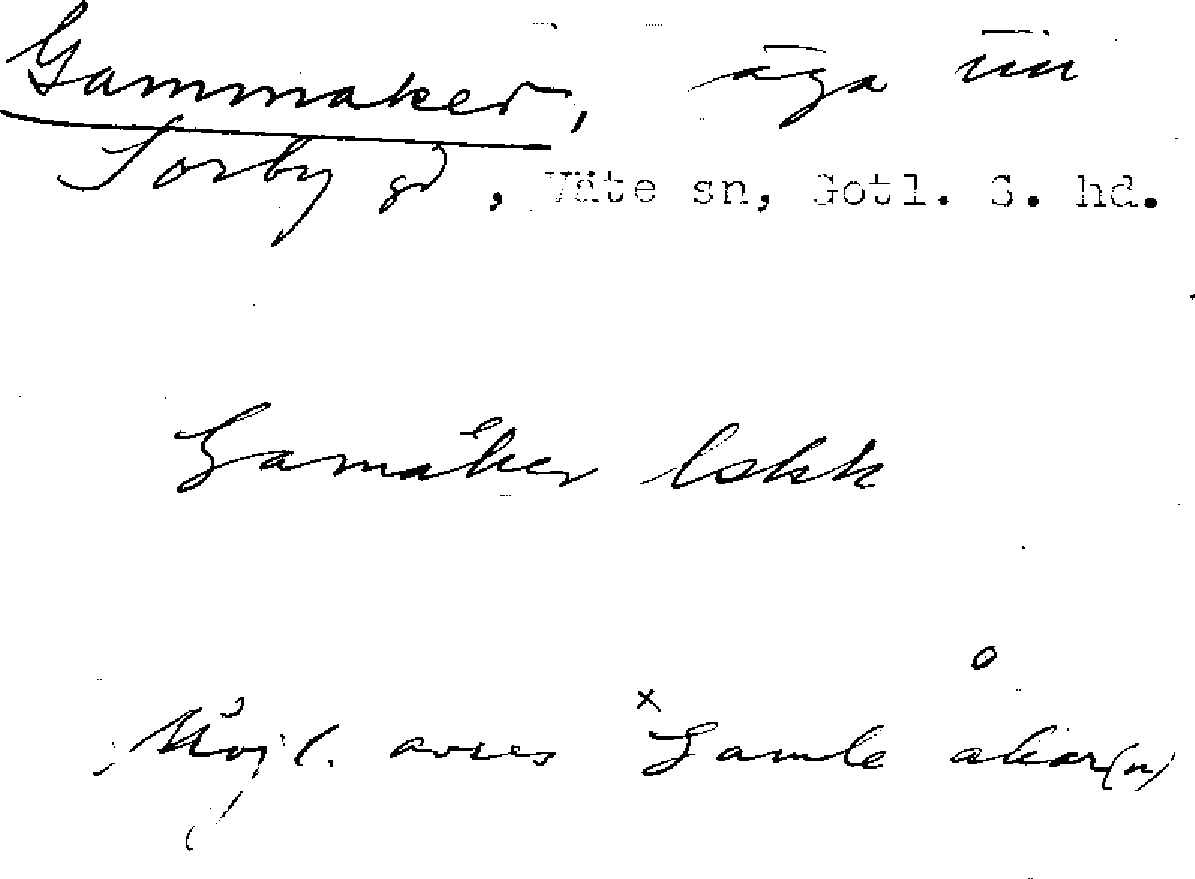 Gammaker, äga
Sorby gd, Väte sn, Gotl. S. hd.
Gamåker lokk
Möjl. avses ˣGamle åkar(n)